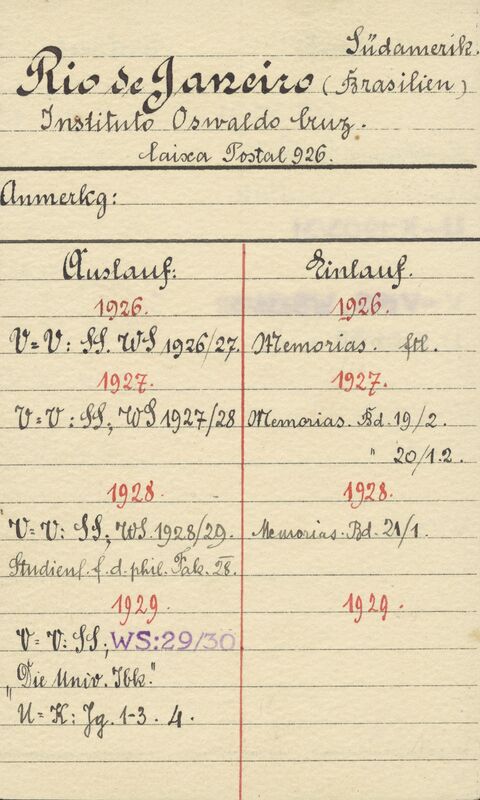 Südamerik.
Rio de Janeiro (Brasilien)
Instituto Oswaldo Cruz.
Caixa Postal 926.
Anmerkg:
Auslauf:
1926.
V=V: SS. WS 1926/27.
1927.
V=V: SS, WS 1927/28
1928.
V=V: SS, WS. 1928/29.
Studienf. f. d. phil. Fak. 28.
1929.
V=V: SS, WS:29/30
"Die Univ. Ibk."
U=K: Jg. 1-3. 4.
Einlauf.
1926.
Memorias. ftl.
1927.
Memorias. Bd. 19/2.
" 20/1.2.
1928.
Memorias. Bd. 21/1.
1929.